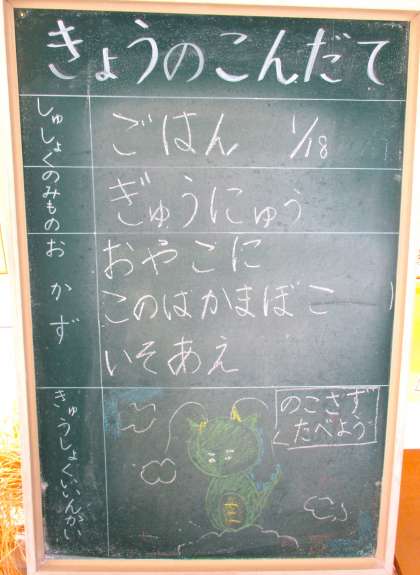 きょうのこんだて
しゅしょく
ごはん 1/18
のみもの
ぎゅうにゅう
おかず
おやこに
このはかまぼこ
いそあえ
きゅうしょくいいんかい
のこさず
たべよう